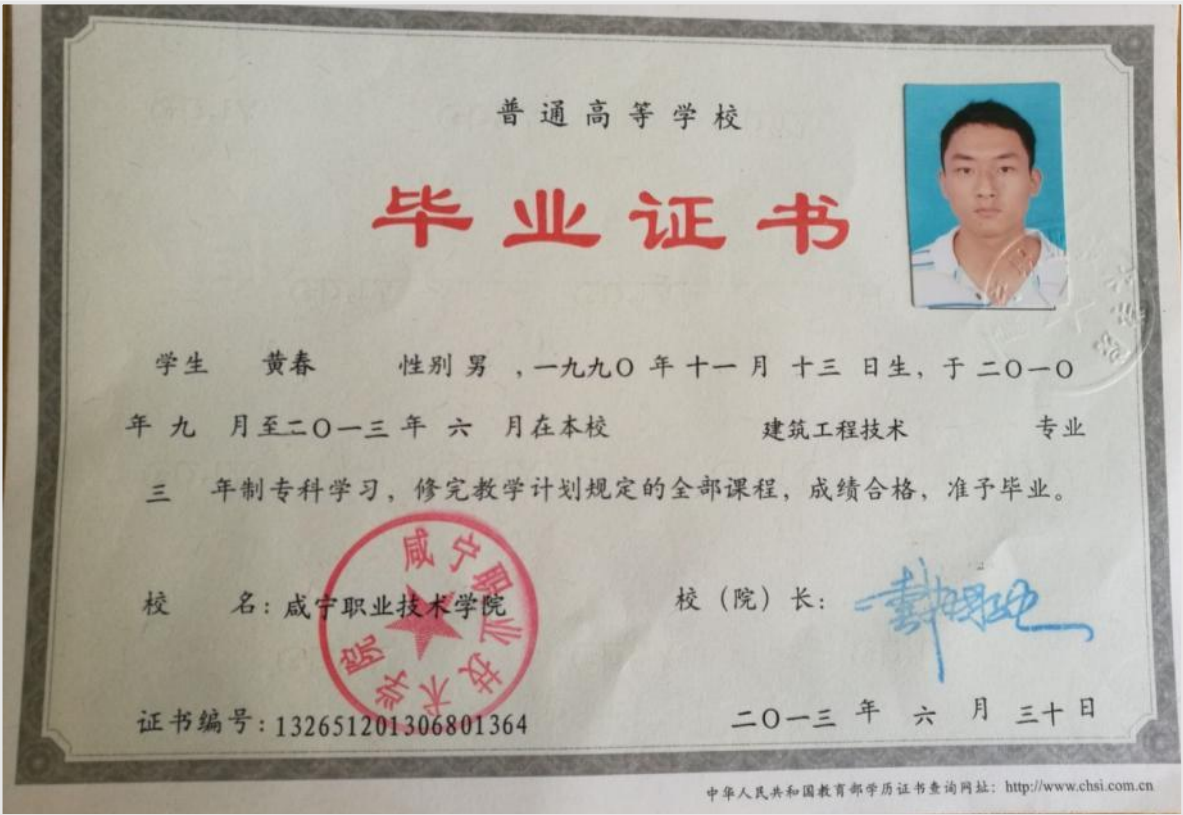 普通高等学校
毕业证书
学生 黄春 性别 男 ,一九九〇 年 十一 月 十三 日生, 于 二〇一〇
年 九 月至二〇一三 年 六 月在本校 建筑工程技术 专业
三 年制专科学习, 修完教学计划规定的全部课程, 成绩合格, 准予毕业。
校 名: 咸宁职业技术学院
校（院）长:
咸宁职业技术学院
证书编号: 132651201306801364
二〇一三 年 六 月 三十 日
中华人民共和国教育部学历证书查询网址: http://www.chsi.com.cn